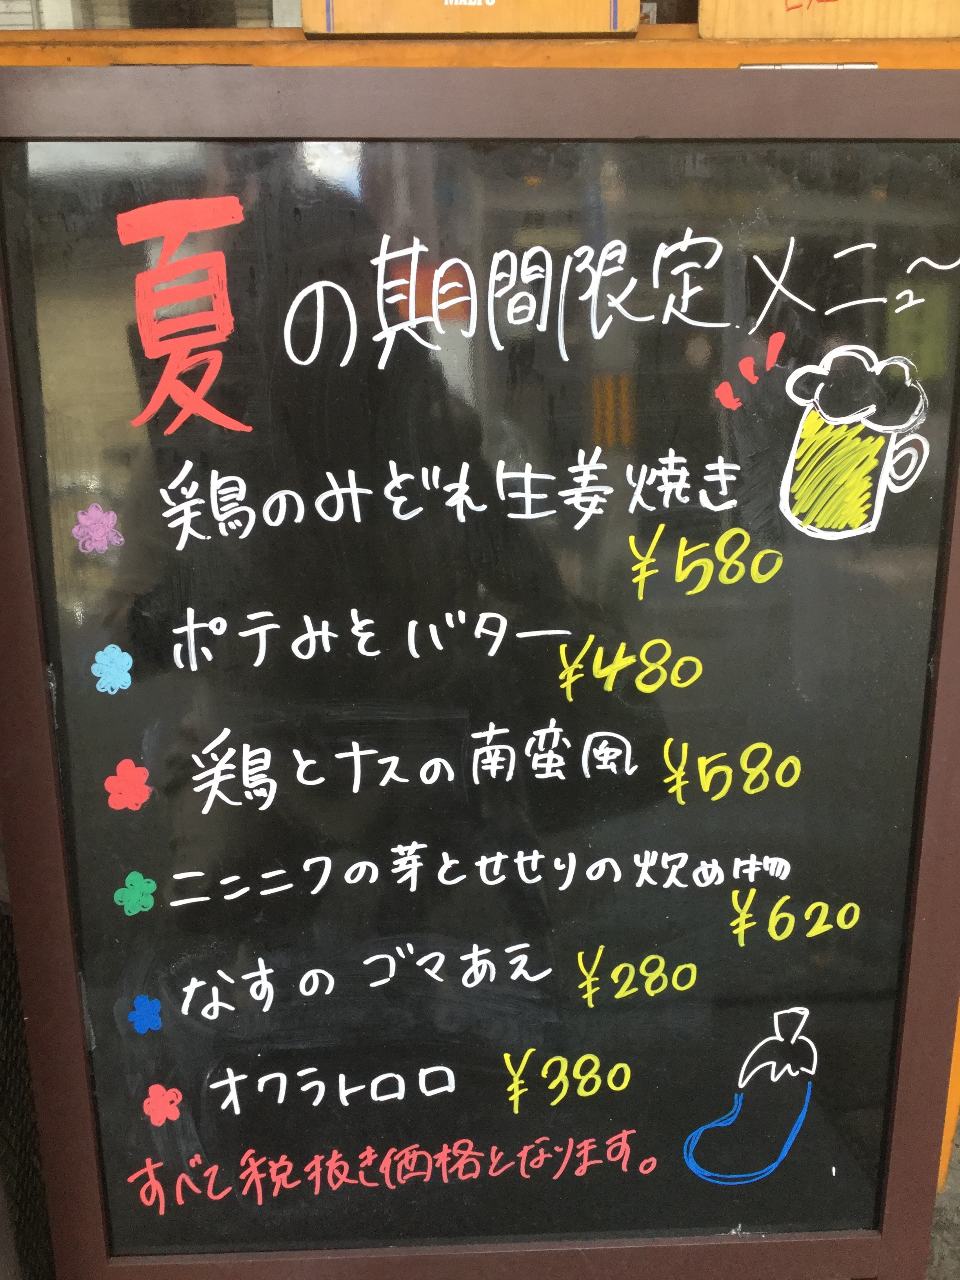 夏の期間限定メニュ〜
鶏のみぞれ生姜焼き
¥580
ポテみそバター ¥480
鶏とナスの南蛮風 ¥580
ニンニクの芽とせせりの炊め物
¥620
なすのゴマあえ ¥280
オクラトロロ ¥380
すべて税抜き価格となります。